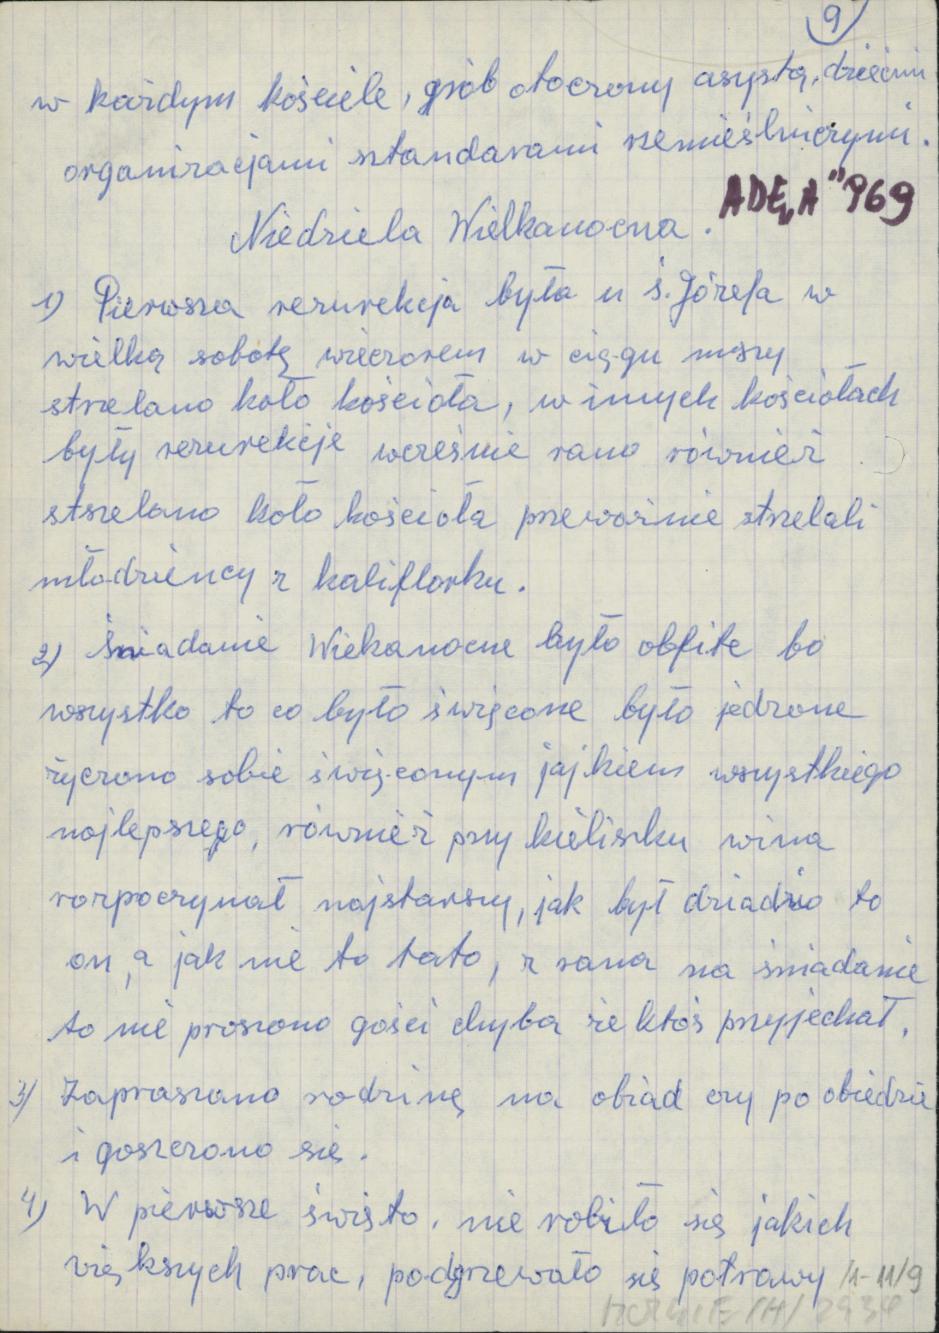 9
w każdym kościele, grób otoczony asystą, dziećmi
organizacjami sztandarami rzemieślniczymi.
ADE "A" 969
Niedziela Wielkanocna.
1) Pierwsza rezurekcja była u ś. Józefa w
wielką sobotę wieczorem w ciągu mszy
strzelano koło kościoła, w innych kościołach
były rezurekcje wcześnie rano również
strzelano koło kościoła przeważnie strzelali
młodzieńcy z kaliflorku.
2) Śniadanie Wiekanocne było obfite bo
wszystko to co było święcone było jedzone
życzono sobie święconym jajkiem wszystkiego
najlepszego, również przy kieliszku wina
rozpoczynał najstarszy, jak był dziadzio to
on, a jak nie to tato, z rana na śniadanie
to nie proszono gości chyba że ktoś przyjechał.
3) Zapraszano rodzinę na obiad czy po obiedzie
i goszczono się.
4) W pierwsze święto, nie robiło się jakich
większych prac, podgrzewało się potrawy
/1-11/9
/2934